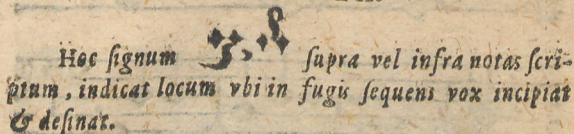 Hoc ſignum ſupra vel infra notas ſcri-
ptum, indicat locum vbi in fugis ſequens vox incipiat
& deſinat.